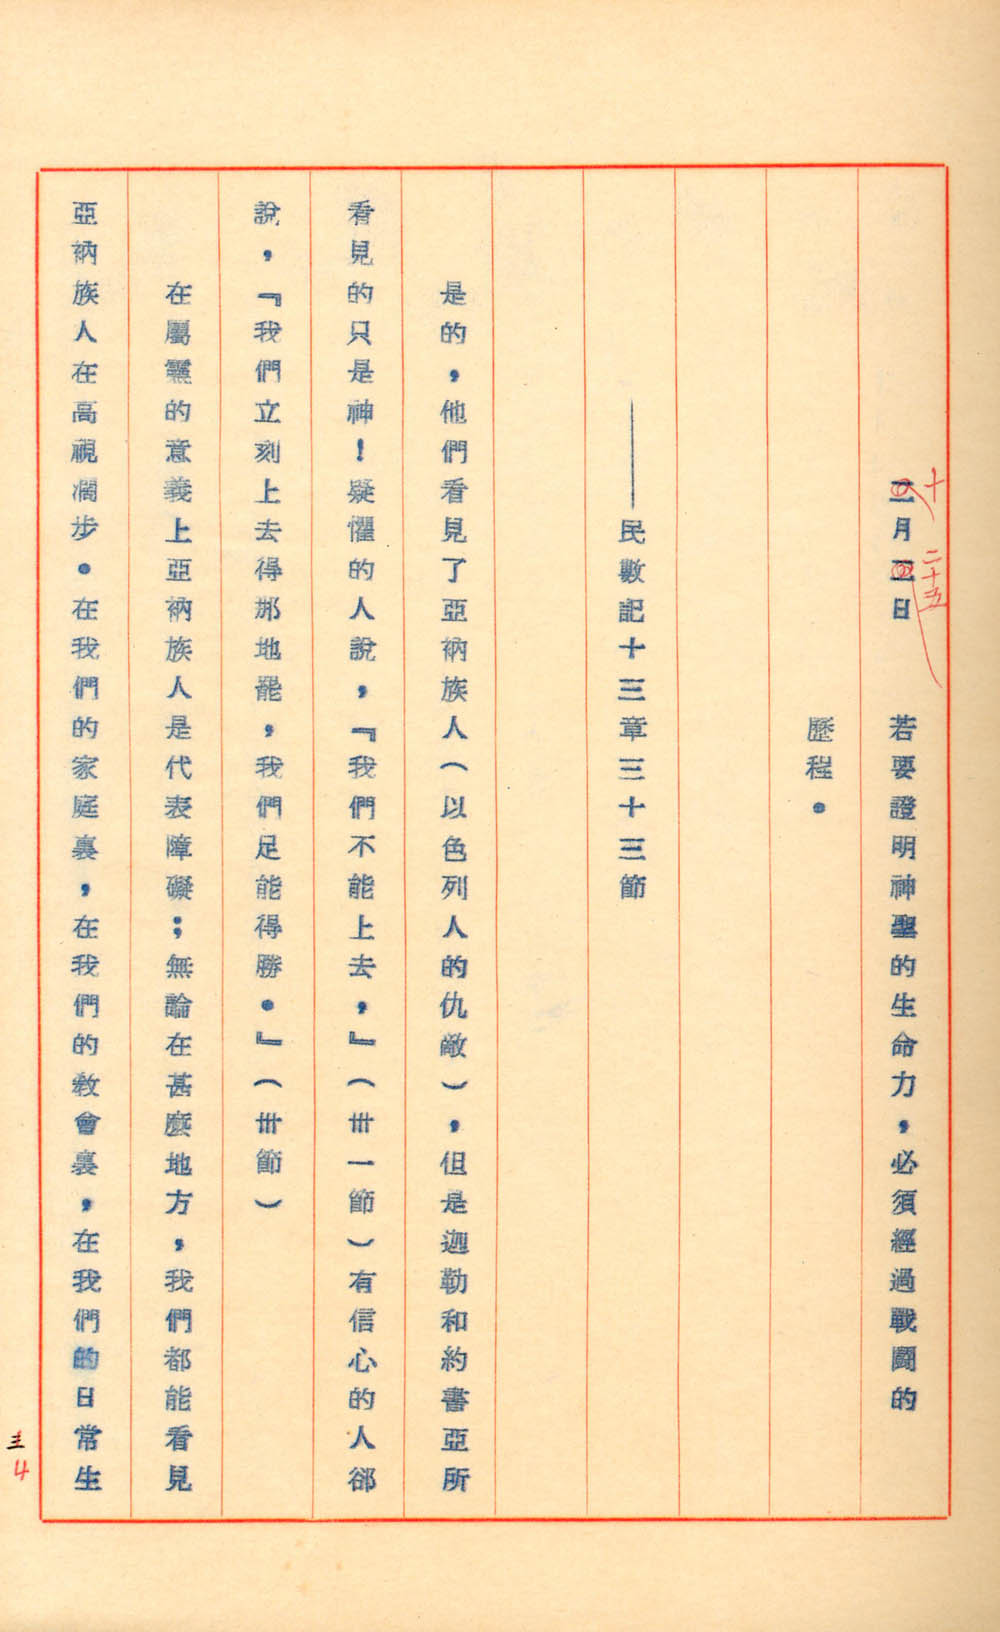 三月三日　　若要證明神聖的生命力，必須經過戰鬪的
十
二十五
歷程。
——民數記十三章三十三節
是的，他們看見了亞衲族人（以色列人的仇敵），但是迦勒和約書亞所
看見的只是神！疑懼的人說，『我們不能上去，』（卅一節）有信心的人郤
說，『我們立刻上去得那地罷，我們足能得勝。』（卅節）
在屬靈的意義上亞衲族人是代表障礙；無論在甚麼地方，我們都能看見
亞衲族人在高視濶步。在我們的家庭裏，在我們的教會裏，在我們的日常生
4